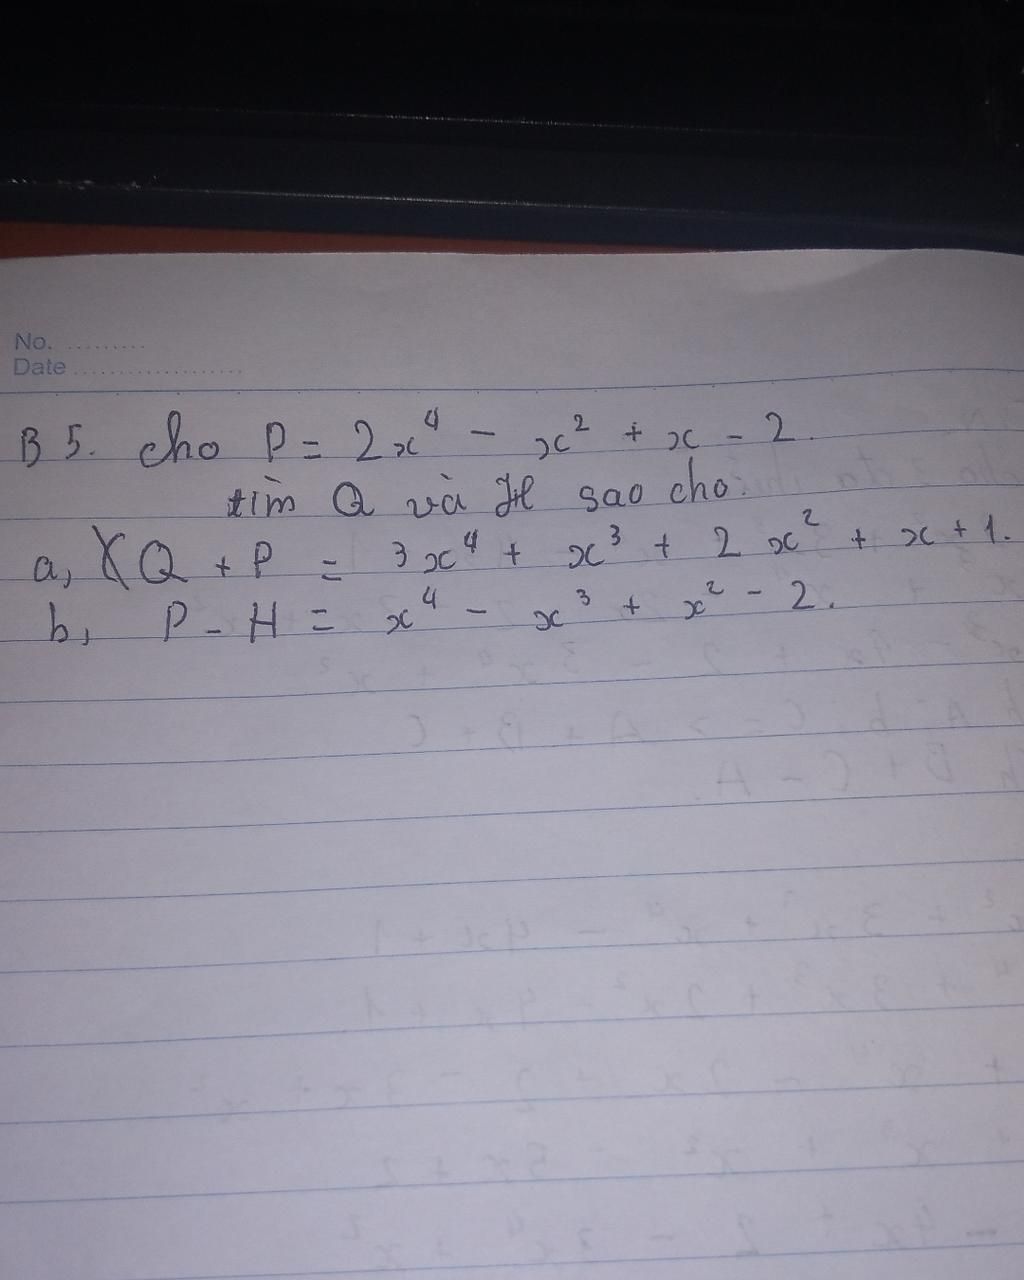 No. .........
Date ...................
B 5. cho P = 2x⁴ - x² + x - 2.
tìm Q và H sao cho.
a, Q + P = 3x⁴ + x³ + 2x² + x + 1.
b, P - H = x⁴ - x³ + x² - 2.